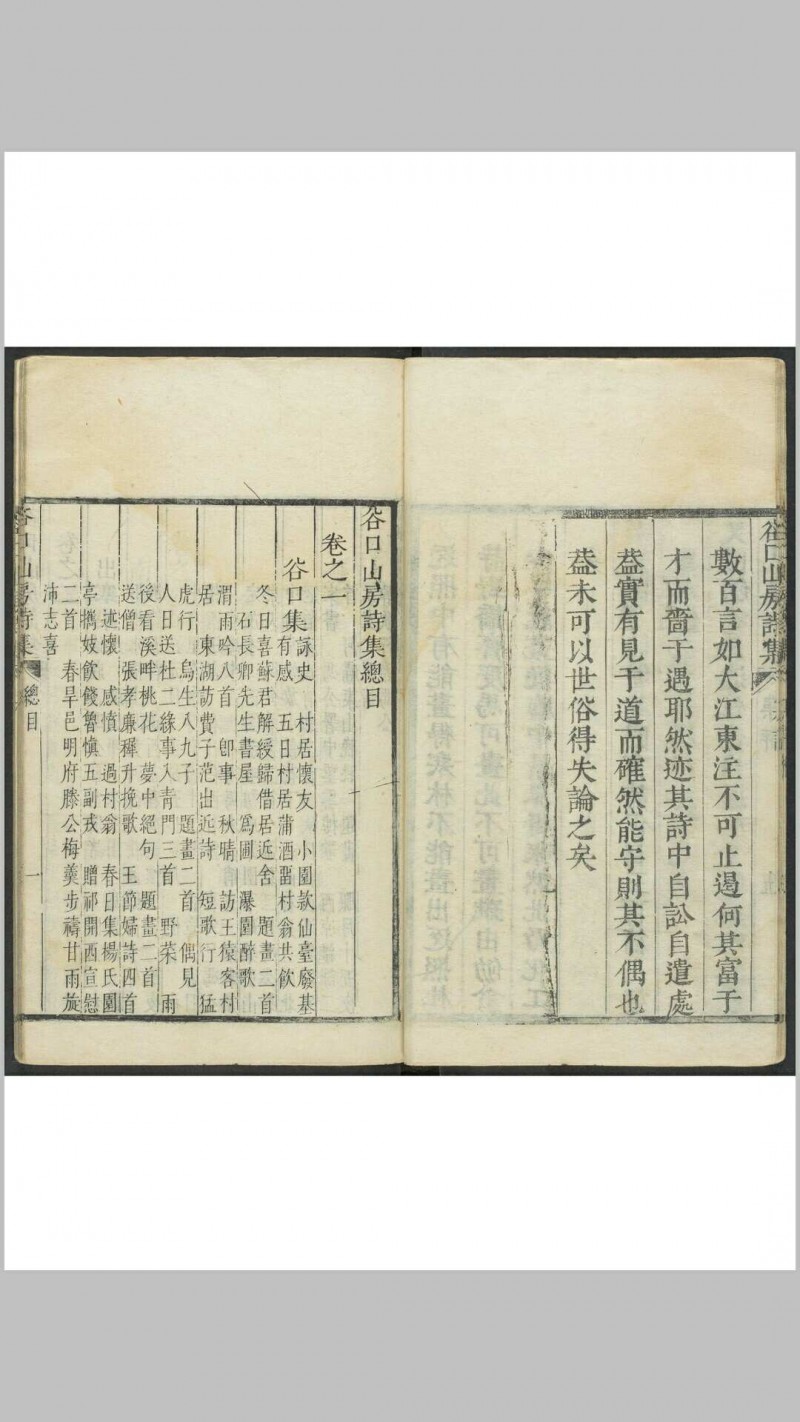 谷口山房詩集
數百言如大江東注不可止遏何其富于
才而嗇于遇耶然迹其詩中自訟自遣處
葢實有見于道而確然能守則其不偶也
葢未可以世俗得失論之矣
谷口山房詩集總目
卷之一
谷口集
詠史　村居懷友　小園款仙臺廢基
有感　五日村居蒲酒畱村翁共飲
冬日喜蘇君解綬歸借居近舍　題畫二首
石長卿先生書屋　爲圃　瀑園醉歌
渭雨吟八首　卽事　秋晴　訪王猿客村
居　東湖訪費子范出近詩　短歌行　猛
虎行　烏生八九子　題畫二首　偶見
人日送杜二緣事入靑門三首　野菜　雨
後看溪畔桃花　夢中絕句　題畫二首
送僧　張孝廉穉升挽歌　王節婦詩四首
述懷　感憤　過村翁　春日集楊氏園
亭攜妓飲餞魯慎五副戎　贈祁開西宣慰
二首　春旱邑明府滕公梅羹步禱甘雨旋
沛志喜
谷口山房詩集
總目
一